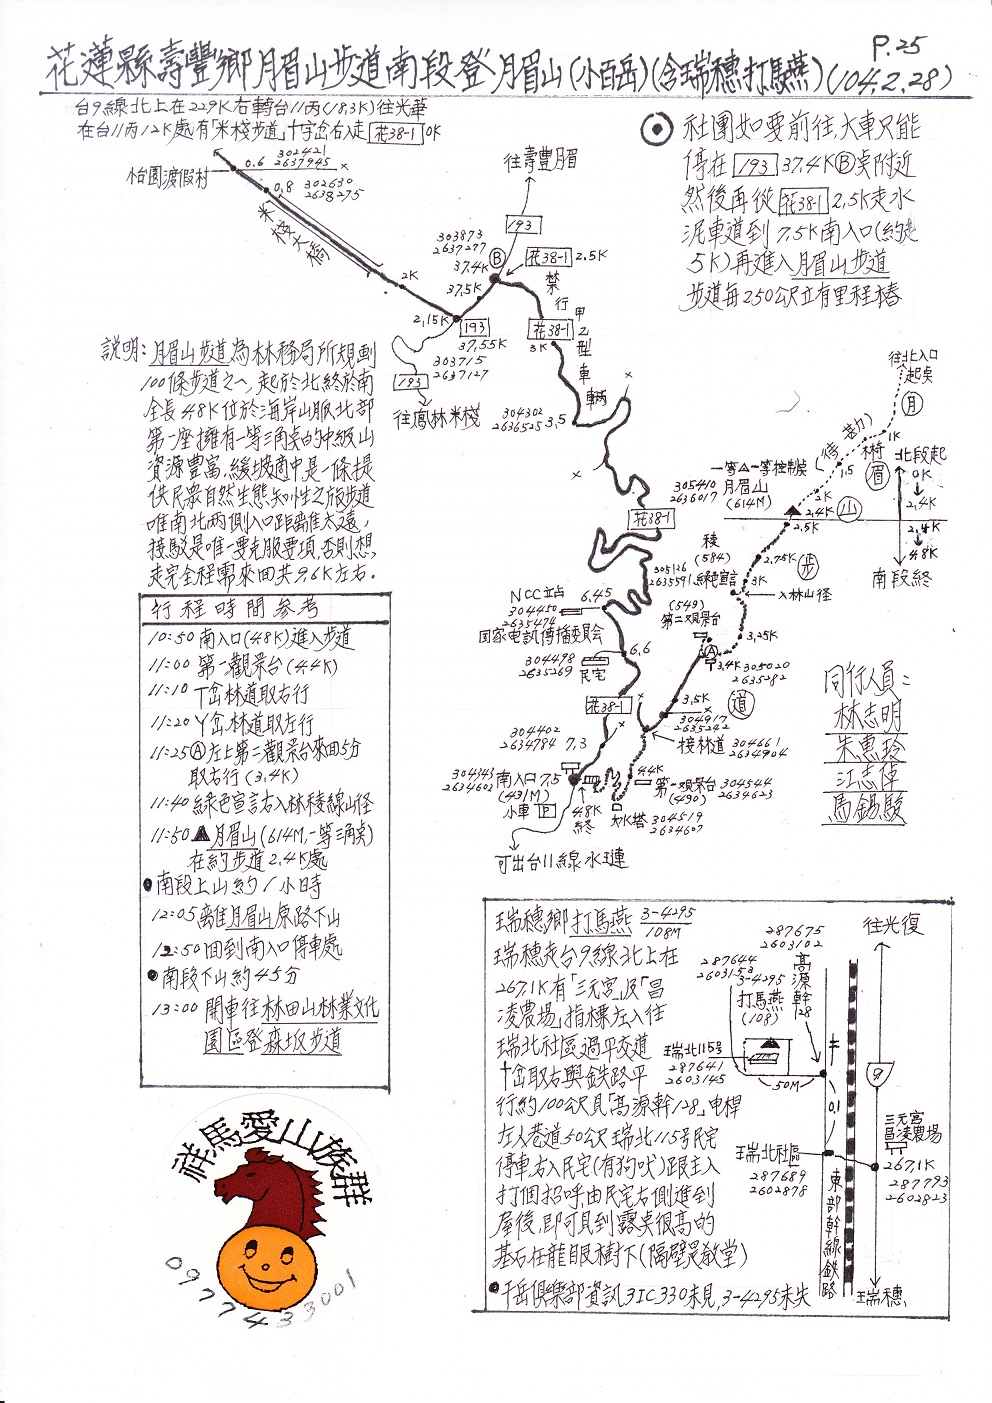 P.25
花蓮縣壽豐鄉月眉山步道南段登月眉山(小百岳)(含瑞穗打馬燕)(104.2.28)
台9線北上在229K右轉台11丙(18.3K)往光華
在台11丙12K處有「米棧步道」十字岔右入走花38-1 0K
社團如要前往,大車只能
停在193 37.4KⒷ桌附近
然後再從花38-1 2.5K走水
泥車道到7.5K南入口(約走
5K)再進入月眉山步道
步道每250公尺立有里程樁
怡園渡假村
0.6 302421
2637945
0.8 302630
2638275
米棧大橋
2K
2.15K
往壽豐月眉
193
303873
2637277
37.4K
Ⓑ
花38-1 2.5K
37.5K
193
37.55K
303715
2637127
193
往鳳林米棧
禁行甲乙型車輛
花38-1
3K
304302
2636525
3.5
花38-1
說明:月眉山步道為林務局所規劃
100條步道之一,起於北終於南
全長4.8K位於海岸山脈北部
第一座擁有一等三角桌的中級山
資源豐富,緩坡適中是一條提
供民眾自然生態知性之旅步道
唯南北兩側入口距離太遠,
接駁是唯一要克服要項,否則想,
走完全程需來回共9.6K左右.
往北入口
起桌
月
眉
山
步
道
(待勘)
1K
椅
1.5
2K
2.4K
2.5K
北段起
0K
2.4K
2.4K
4.8K
南段終
一等△一等控制桌
305410 月眉山
2636017 (614M)
稜
(584)
2.75K
305126
2635591 綠色宣言
3K
入林山徑
(549)
第二观景台
3.25K
Ⓐ
3.4K 305020
2635282
3.5K
304917
2635242
接林道 304661
2634904
NCC站 6.45
304450
2635474
国家电訊傳播委員会
304498
2635269
民宅
6.6
花38-1
304402
2634784 7.3
304343
2634602
南入口 7.5
(431M)
小車 P
4.8K
終
4.4K
第一观景台 304544
(490) 2634623
水塔 304519
2634607
可出台11線水璉
同行人員:
林志明
朱惠玲
江志偉
馬錫駿
行程時間參考
10:50 南入口(4.8K)進入步道
11:00 第一觀景台(4.4K)
11:10 T岔林道取右行
11:20 Y岔林道取左行
11:25Ⓐ左上第二觀景台來回5分
取右行(3.4K)
11:40 綠色宣言右入林稜線山径
11:50▲月眉山(614M,一等三角桌)
在約步道2.4K處
●南段上山約1小時
12:05離月眉山原路下山
12:50回到南入口停車處
●南段下山約45分
13:00 開車往林田山林業文化
園區登森坂步道
祥馬愛山族群
0977433001
瑞穗鄉打馬燕 3-4295
108M
瑞穗走台9線北上在
267.1K有「三元宮」及「昌
凌農場」指標左入往
瑞北社區過平交道
十岔取右與鉄路平
行約100公尺見「高源幹128」电桿
左入巷道50公尺瑞北115号民宅
停車右入民宅(有狗吠)跟主人
打個招呼,由民宅右側進到
屋後,即可見到露桌很高的
基石在龍眼樹下(隔壁是教堂)
●千岳俱樂部資訊3IC330未見,3-4295未失
287675
2603102
高源幹128
287644
2603158
3-4295
打馬燕
(108)
瑞北115号
287641
2603145
50M
0.1
瑞北社區
287689
2602878
往光復
9
三元宮
昌凌農場
267.1K
287793
2602823
東部幹線鉄路
瑞穗